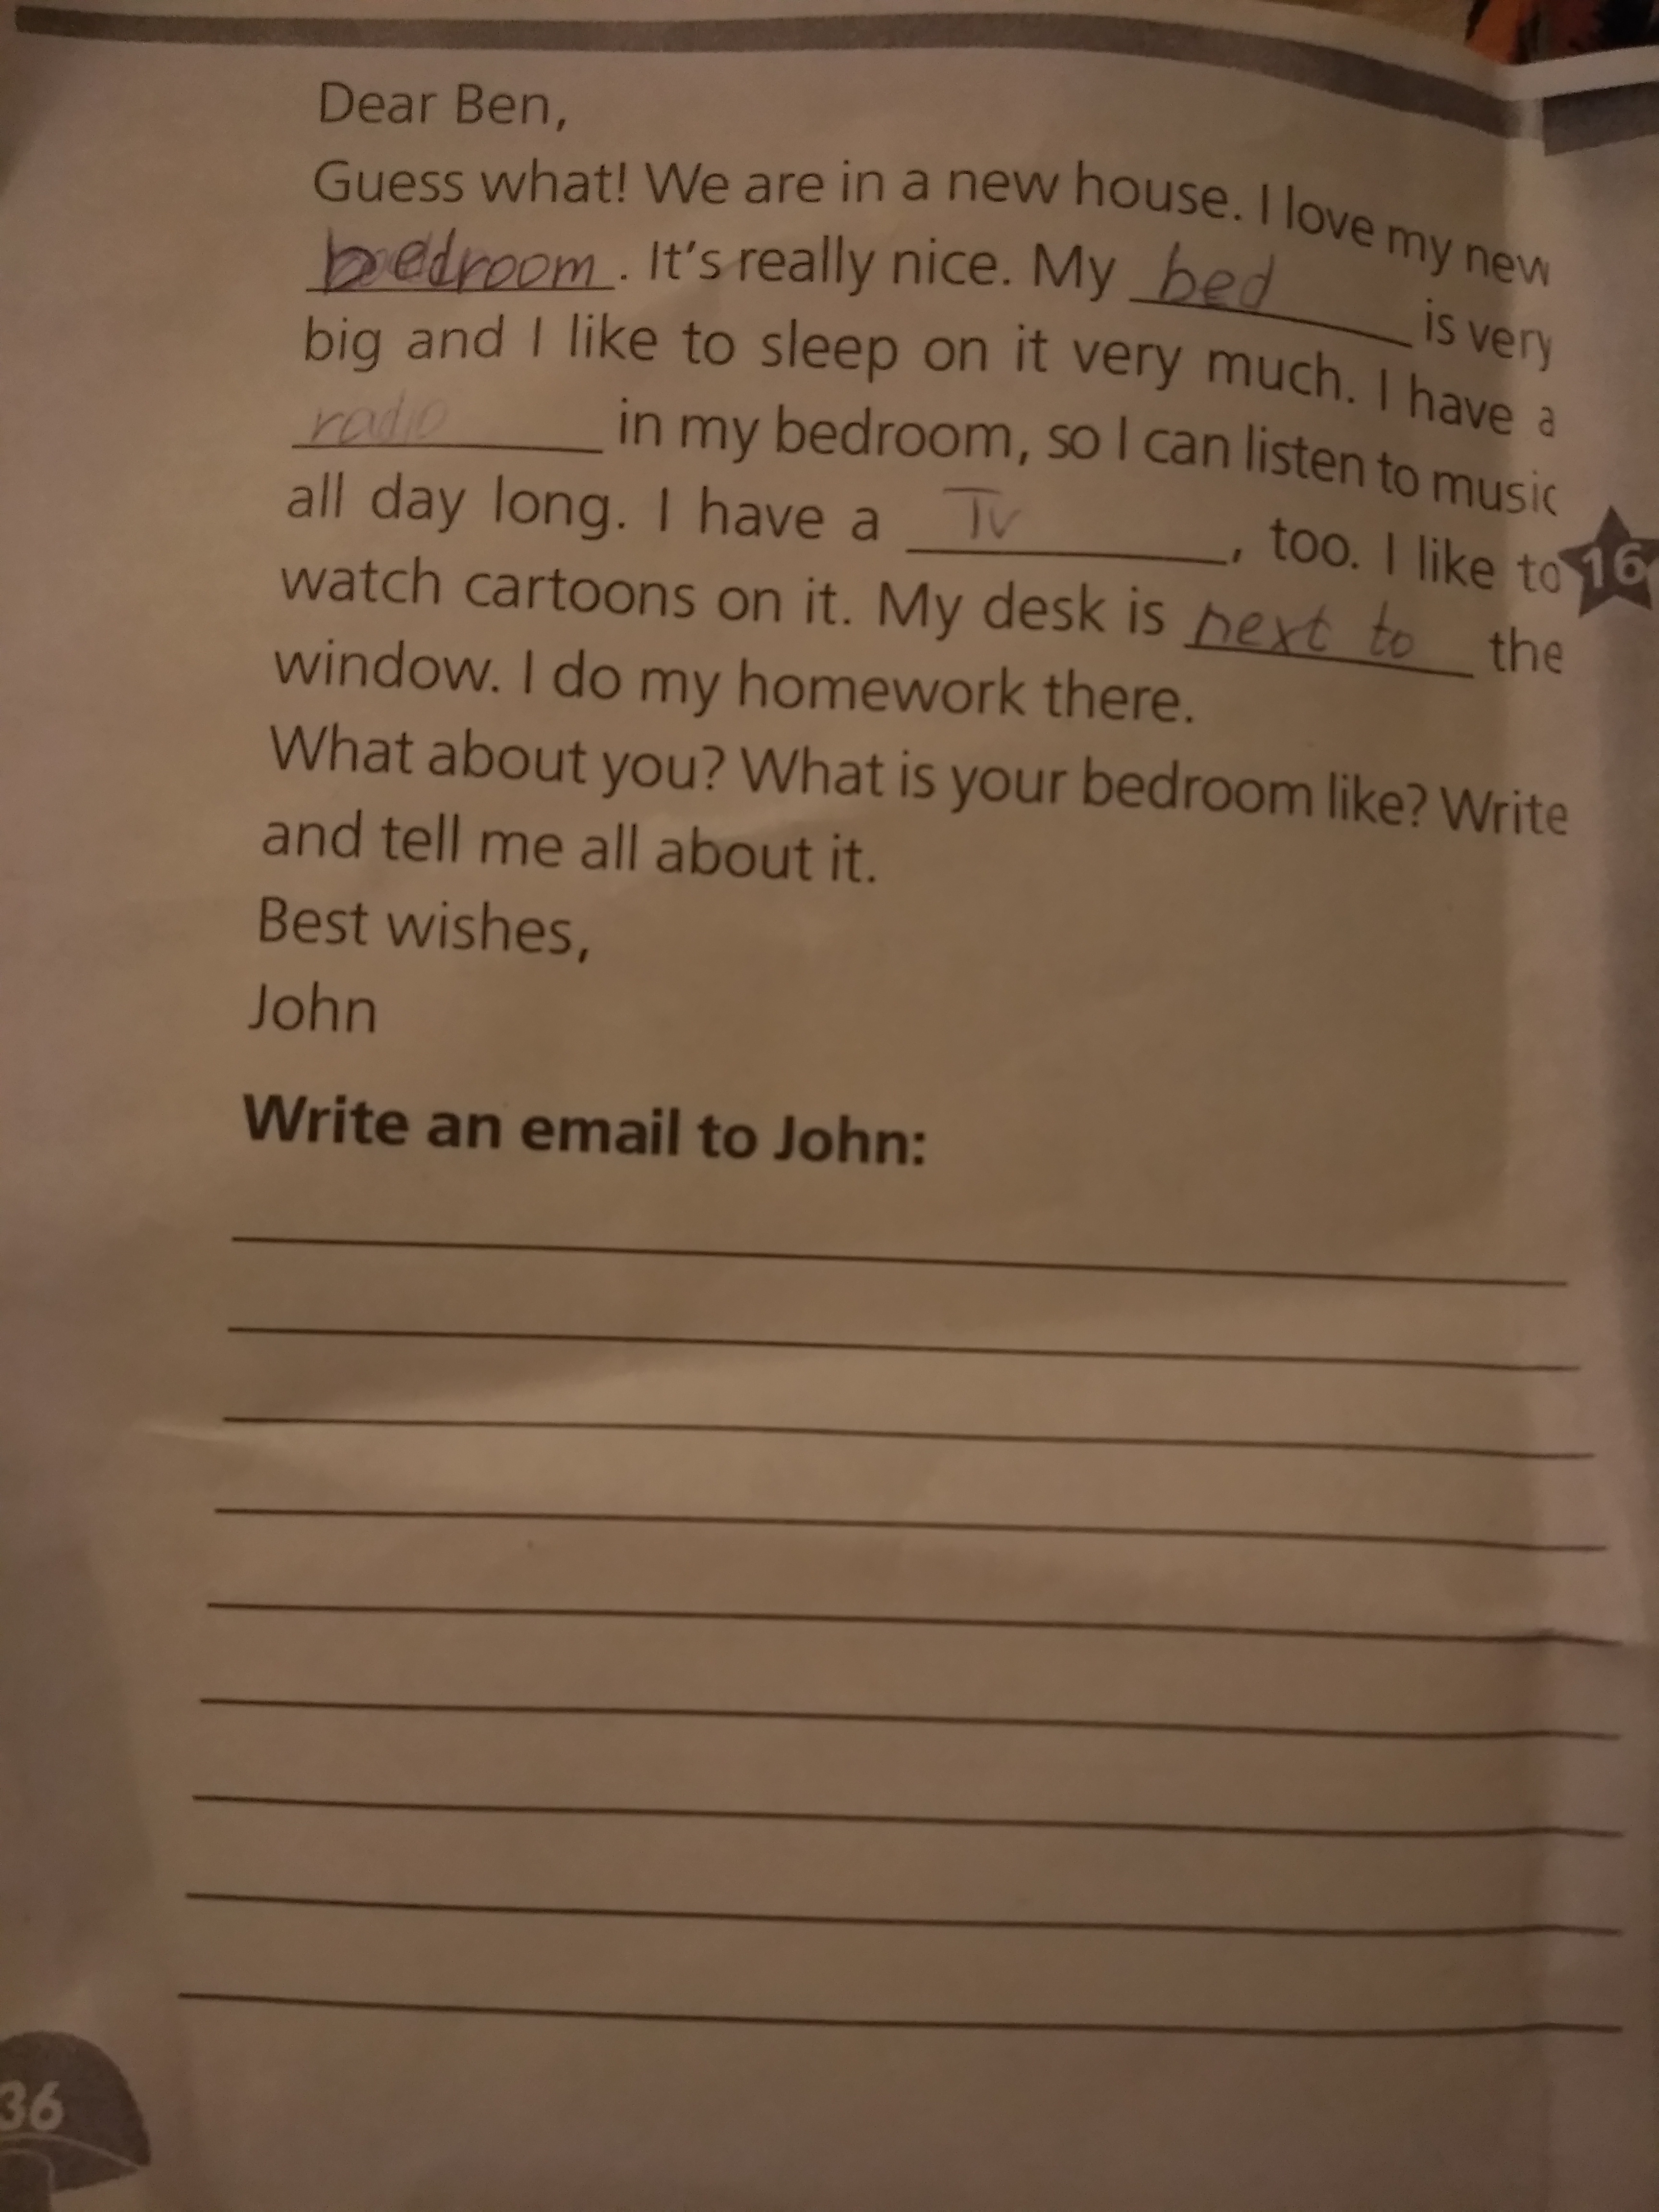 Dear Ben,
Guess what! We are in a new house. I love my new
bedroom. It's really nice. My bed is very
big and I like to sleep on it very much. I have a
radio in my bedroom, so I can listen to music
all day long. I have a Tv, too. I like to
16
watch cartoons on it. My desk is next to the
window. I do my homework there.
What about you? What is your bedroom like? Write
and tell me all about it.
Best wishes,
John
Write an email to John:
36